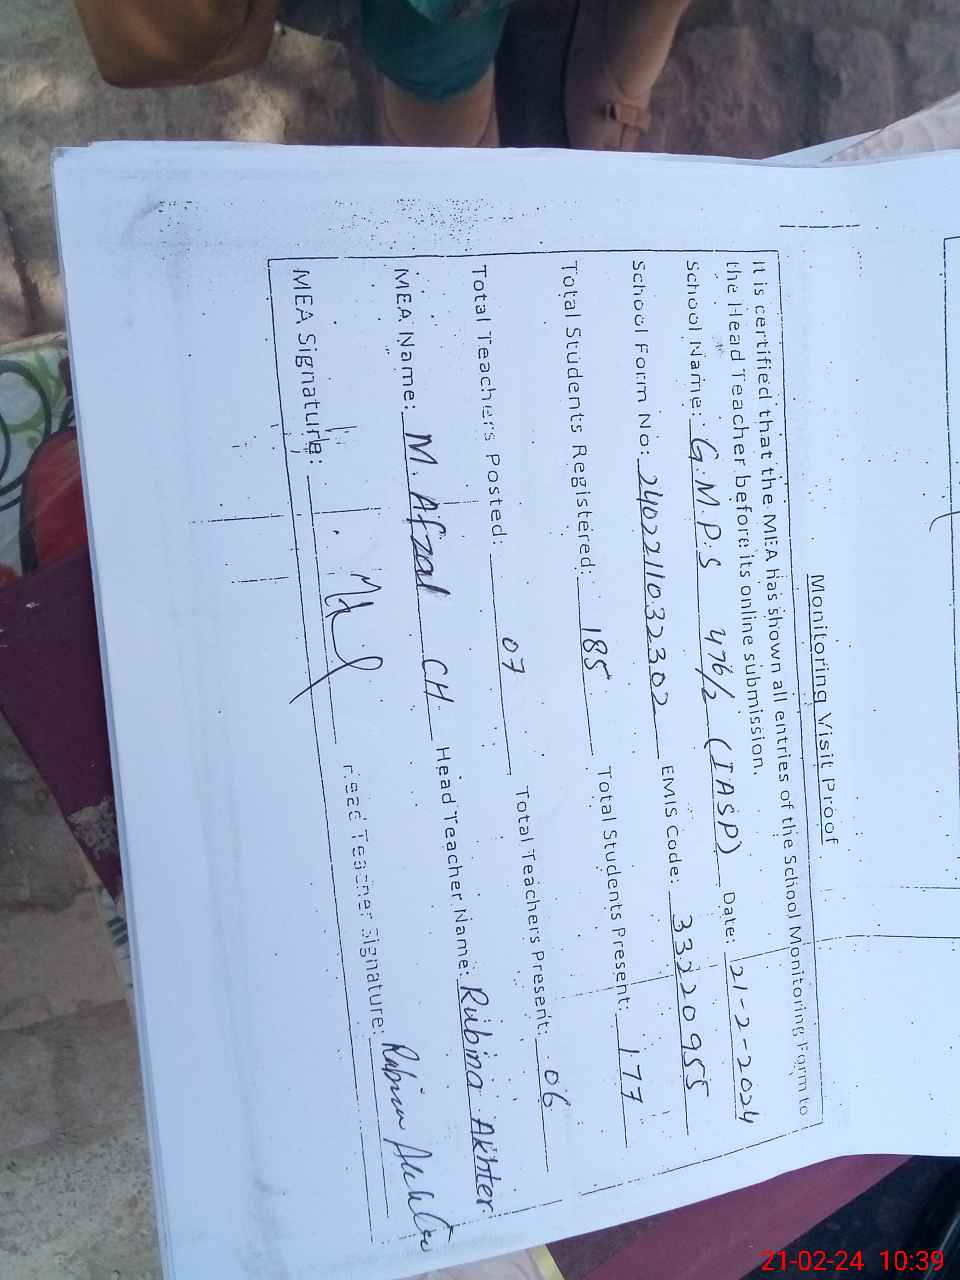 Monitoring Visit Proof
It is certified that the MEA has shown all entries of the School Monitoring Form to
the Head Teacher before its online submission.
School Name: G.M.P.S 476/2 (IASP) Date: 21-2-2024
School Form No: 2402211032302 EMIS Code: 33220955
Total Students Registered: 185 Total Students Present: 177
Total Teachers Posted: 07 Total Teachers Present: 06
MEA Name: M. Afzal CH Head Teacher Name: Rubina Akhter
MEA Signature: Head Teacher Signature: Rubina Akhter
21-02-24 10:39